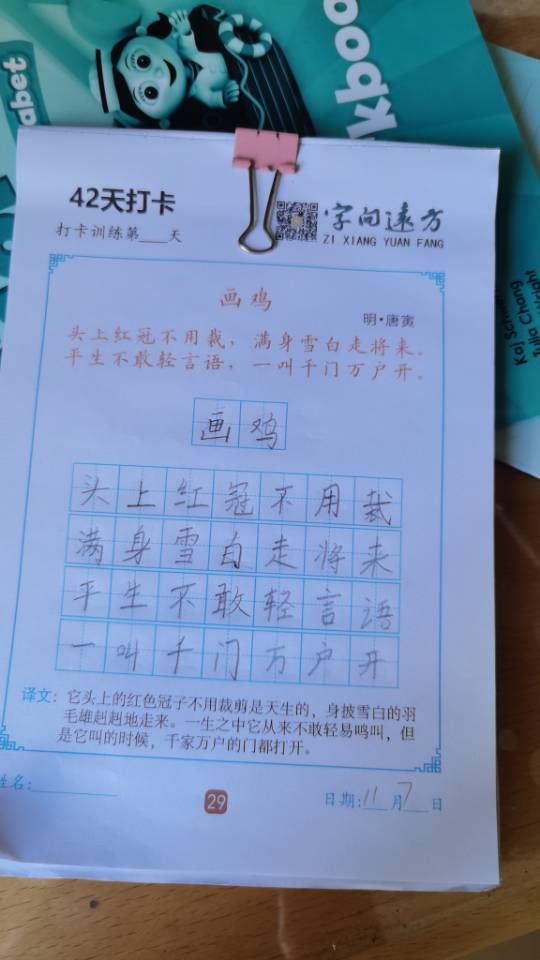 abet
kboo
42天打卡
打卡训练第___天
字向远方
ZI XIANG YUAN FANG
Julia Chang
画鸡
明·唐寅
头上红冠不用裁，满身雪白走将来。
平生不敢轻言语，一叫千门万户开。
画鸡
头上红冠不用裁
满身雪白走将来
平生不敢轻言语
一叫千门万户开
译文：它头上的红色冠子不用裁剪是天生的，身披雪白的羽
毛雄赳赳地走来。一生之中它从来不敢轻易鸣叫，但
是它叫的时候，千家万户的门都打开。
姓名：
29
日期：11月7日